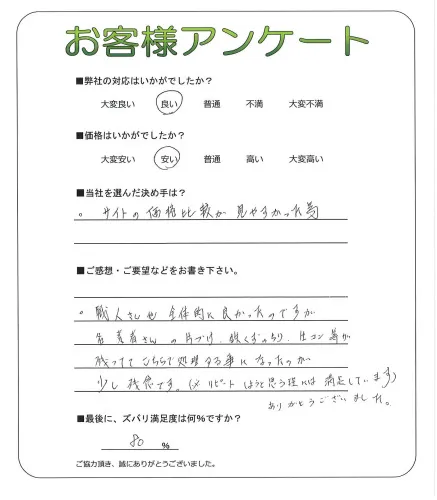 お客様アンケート
■弊社の対応はいかがでしたか?
大変良い 良い 普通 不満 大変不満
■価格はいかがでしたか?
大変安い 安い 普通 高い 大変高い
■当社を選んだ決め手は?
。サイトの価格比較が見やすかった為
■ご感想・ご要望などをお書き下さい。
。職人さんも全体的に良かったのですが
若者さんの片づけ、
残っててこちらで処理する事になったのが
少し残念です。(※リピートしようと思う程には満足しています)
ありがとうございました。
■最後に、ズバリ満足度は何%ですか?
80 %
ご協力頂き、誠にありがとうございました。